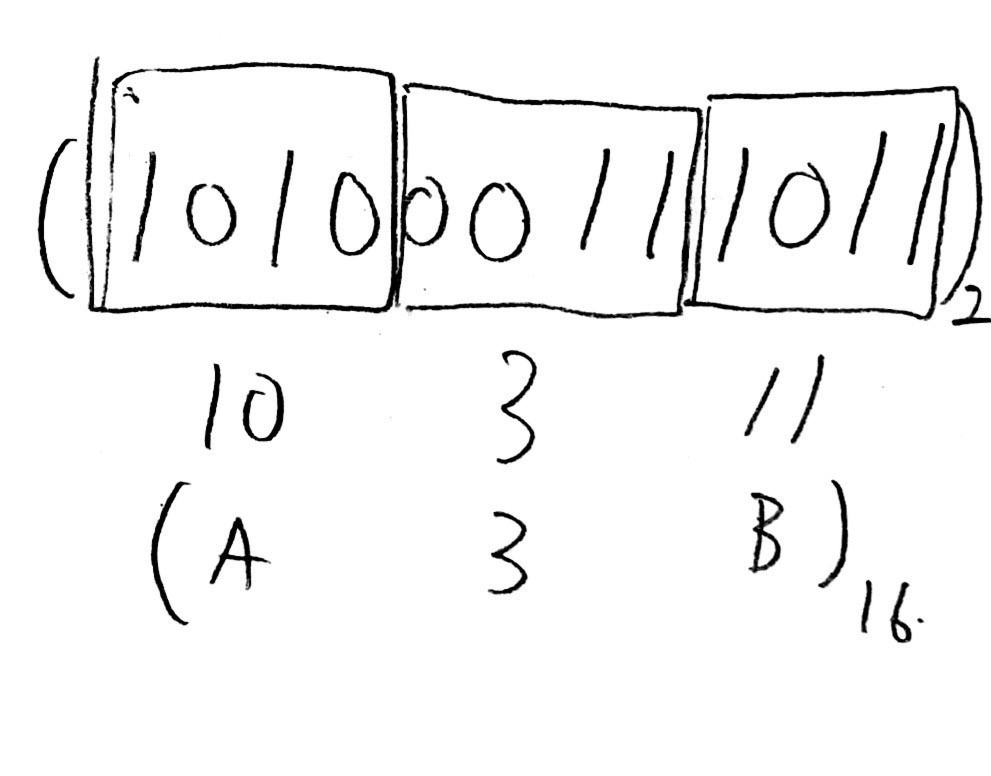 (1010 0011 1011)2
10 3 11
(A 3 B)16.